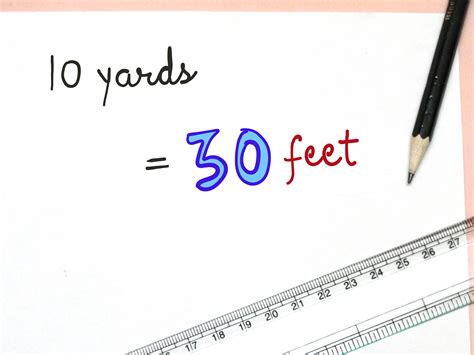 10 yards
= 30 feet
17 18 19 20 21 22 23 24 25 26 27